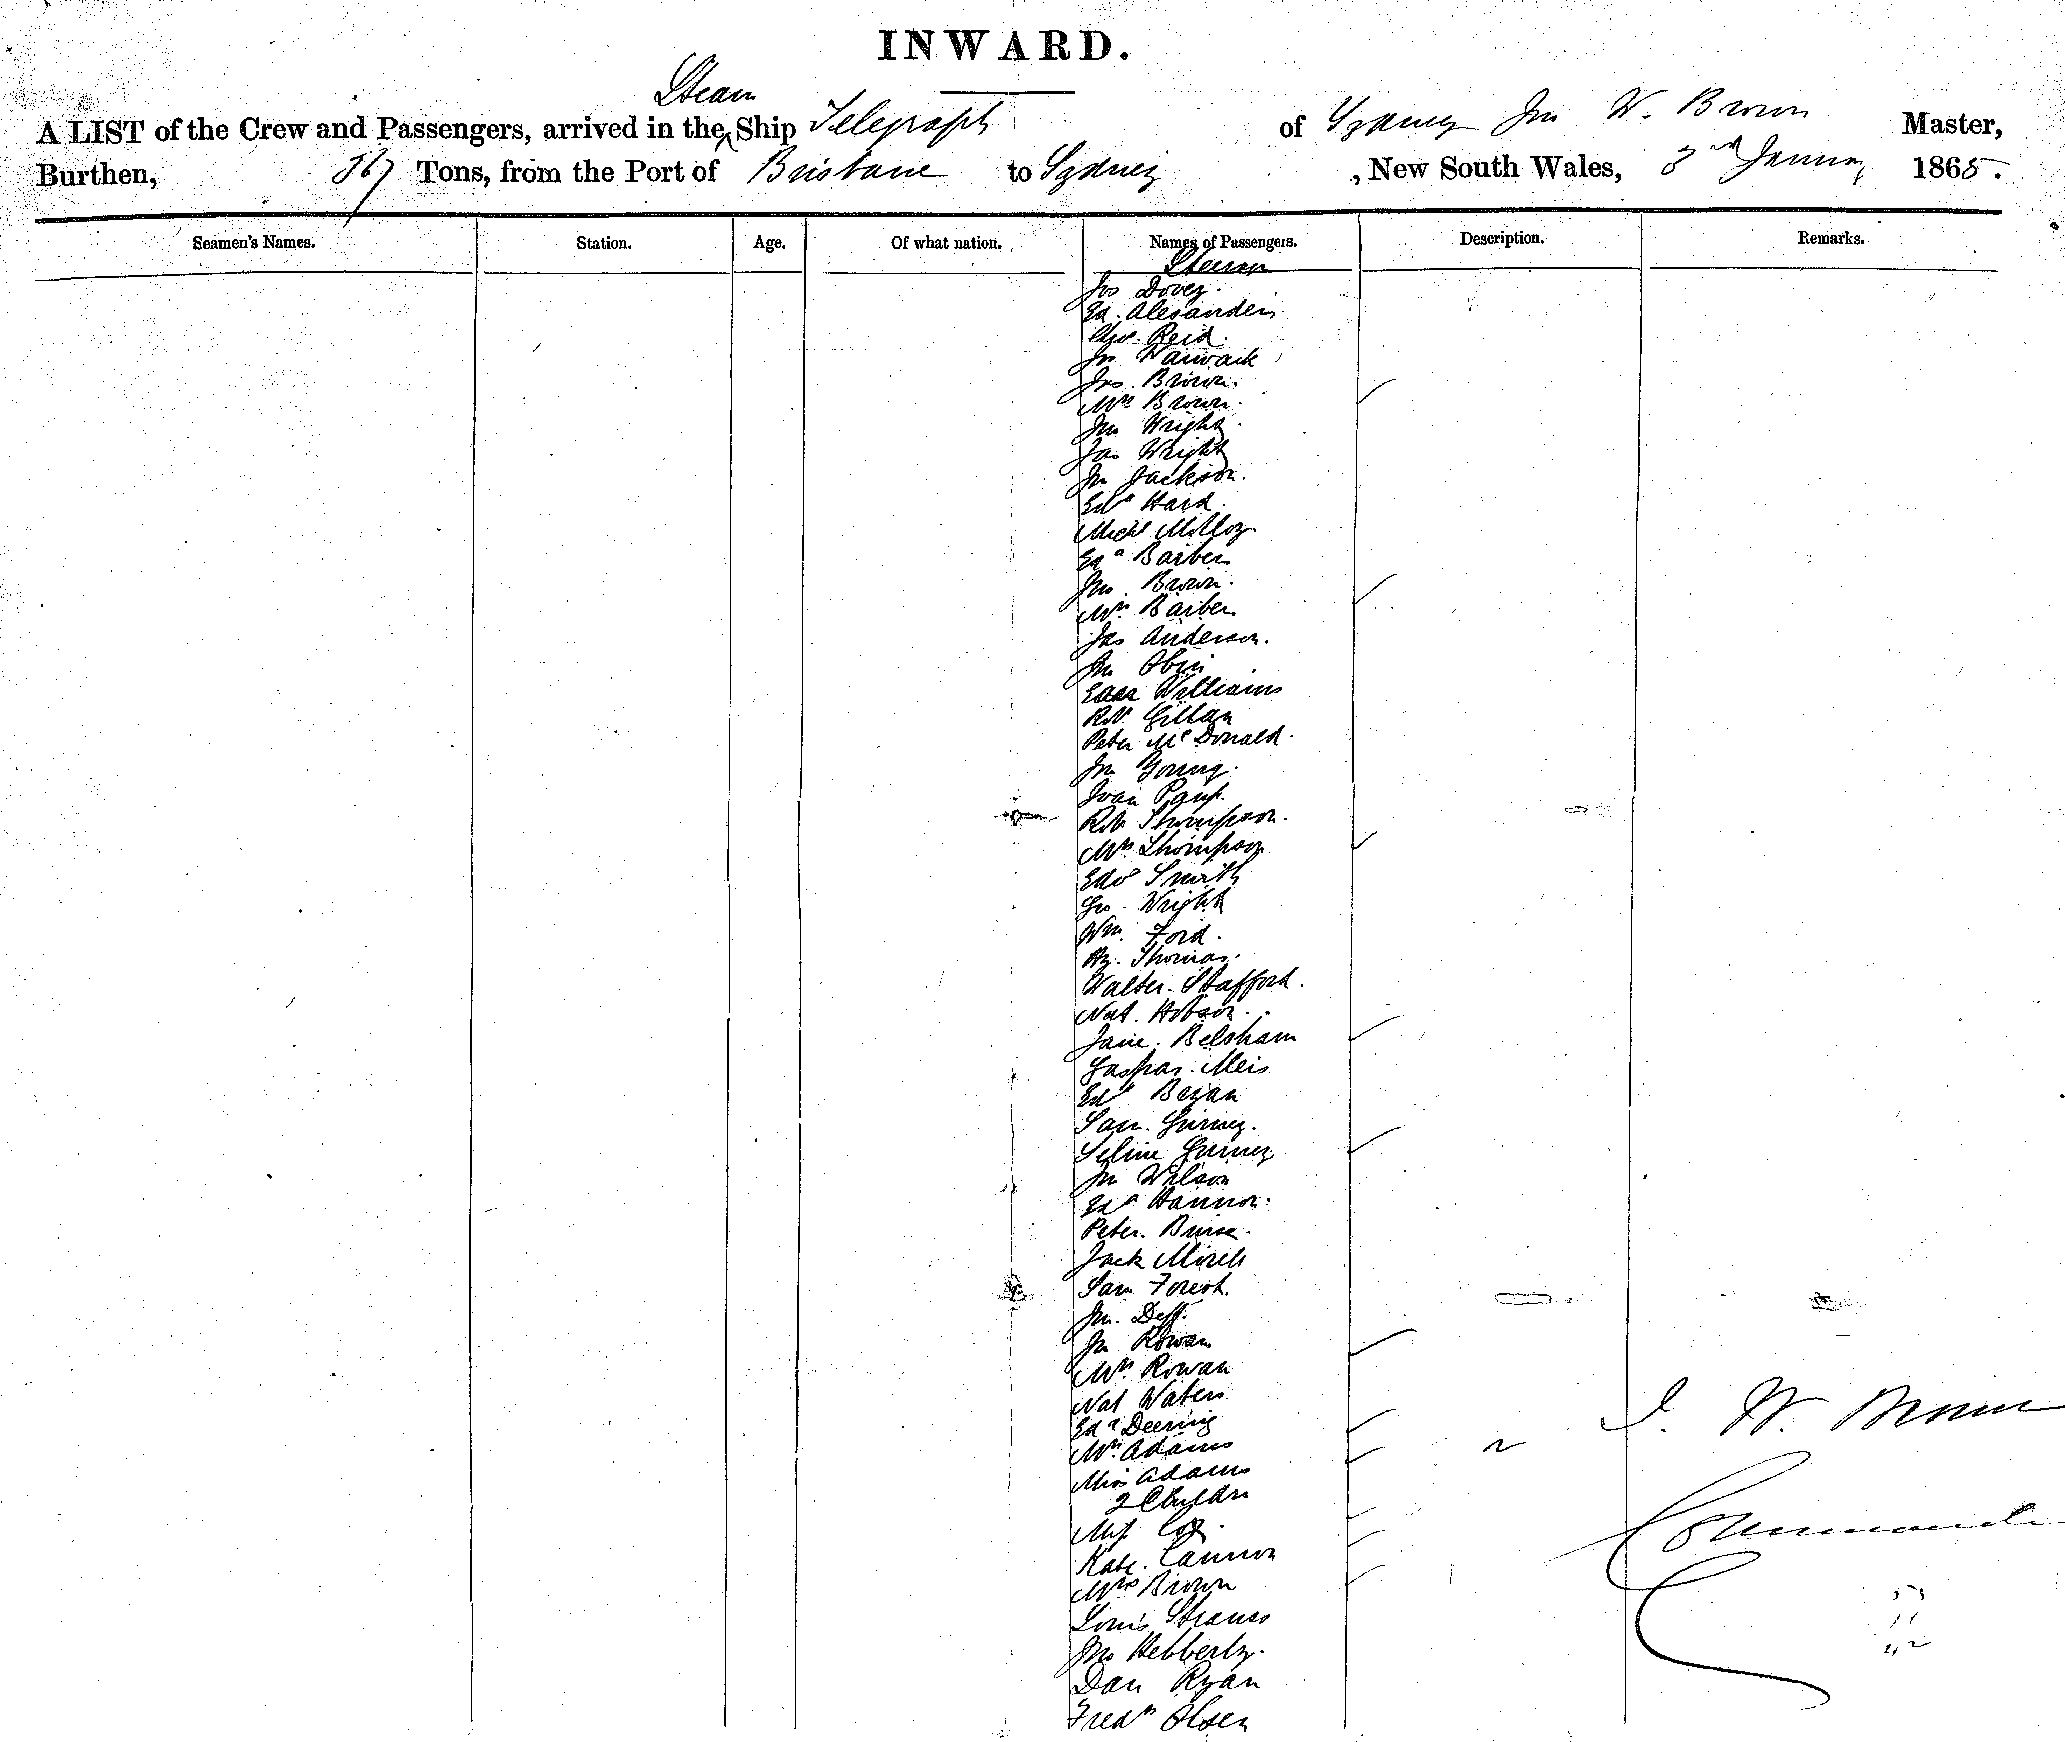 INWARD.
Steam
A LIST of the Crew and Passengers, arrived in the Ship Telegraph of Sydney Jno W. Brown Master,
Burthen, 367 Tons, from the Port of Brisbane to Sydney, New South Wales, 3rd 1865.
Seamen's Names. Station. Age. Of what nation. Names of Passengers. Description. Remarks.
Jos Dovey.
Ed. Alexander
Reid.
Jn Warwack
Jas. Brown.
Mrs Brown.
Jno Wright.
Jas Wright
Jn Jackson.
Edd Hard.
Michl Molloy.
Edd Barber
Jno. Brown.
Mrs Barber
Jas Anderson.
Jn
Williams
Robt Gillan
Peter McDonald.
Jn Young.
Ivan
Robt Thompson.
Mrs Thompson
Edwd Smith
Wright
Wm. Ford.
Hy. Thomas.
Walter. Stafford.
Nat. Hobson.
Jane. Belsham
Gaspar. Meis
Edd
Sam. Gurney.
Seline Gurney
Jn Wilson
Edd Hannon.
Peter.
Jack
Sam Forest.
Jn.
Jn Rowan
Mrs Rowan
Nat Waters
Edd Deering
Mrs Adams
Miss Adams
2 Childn
Miss
Kate. Cannon
Mrs Brown
Louis Strauss
Jno Hebberly.
Dan Ryan
Fredk Olsen
J. W. Brown
Commander
53
11
42